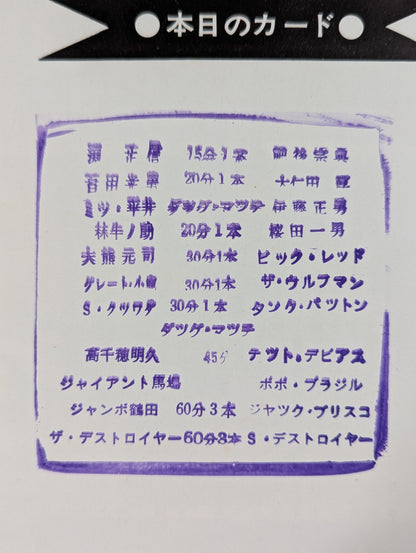 ●本日のカード●
淵 正信 15分1本 御務宗眞
百田義男 20分1本 大仁田 厚
ミツ・平井 ダツグ・マツチ 伊藤正男
林牛ノ助 20分1本 桜田一男
大熊元司 30分1本 ビック・レッド
グレート・小鹿 30分1本 ザ・ウルフマン
S・クツワダ 30分1本 タンク・パツトン
ダツグ・マツチ
高千穂明久 45分 テツト・デビアス
ジャイアント馬場 ボボ・ブラジル
ジャンボ鶴田 60分3本 ジヤツク・ブリスコ
ザ・デストロイヤー 60分3本 S・デストロイヤー